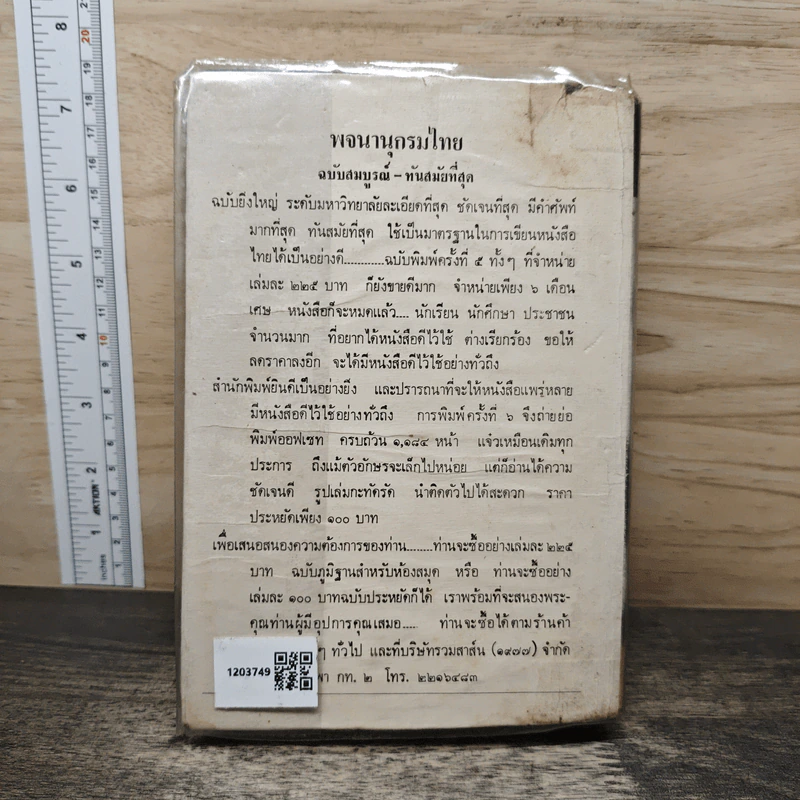 พจนานุกรมไทย
ฉบับสมบูรณ์ – ทันสมัยที่สุด
ฉบับยิ่งใหญ่ ระดับมหาวิทยาลัยละเอียดที่สุด ชัดเจนที่สุด มีคำศัพท์
มากที่สุด ทันสมัยที่สุด ใช้เป็นมาตรฐานในการเขียนหนังสือ
ไทยได้เป็นอย่างดี............ฉบับพิมพ์ครั้งที่ ๕ ทั้งๆ ที่จำหน่าย
เล่มละ ๒๒๕ บาท ก็ยังขายดีมาก จำหน่ายเพียง ๖ เดือน
เศษ หนังสือก็จะหมดแล้ว.... นักเรียน นักศึกษา ประชาชน
จำนวนมาก ที่อยากได้หนังสือดีไว้ใช้ ต่างเรียกร้อง ขอให้
ลดราคาลงอีก จะได้มีหนังสือดีไว้ใช้อย่างทั่วถึง
สำนักพิมพ์ยินดีเป็นอย่างยิ่ง และปรารถนาที่จะให้หนังสือแพร่หลาย
มีหนังสือดีไว้ใช้อย่างทั่วถึง การพิมพ์ครั้งที่ ๖ จึงถ่ายย่อ
พิมพ์ออฟเซท ครบถ้วน ๑,๑๘๔ หน้า แจ๋วเหมือนเดิมทุก
ประการ ถึงแม้ตัวอักษรจะเล็กไปหน่อย แต่ก็อ่านได้ความ
ชัดเจนดี รูปเล่มกะทัดรัด นำติดตัวไปได้สะดวก ราคา
ประหยัดเพียง ๑๐๐ บาท
เพื่อเสนอสนองความต้องการของท่าน........ท่านจะซื้ออย่างเล่มละ ๒๒๕
บาท ฉบับภูมิฐานสำหรับห้องสมุด หรือ ท่านจะซื้ออย่าง
เล่มละ ๑๐๐ บาทฉบับประหยัดก็ได้ เราพร้อมที่จะสนองพระ-
คุณท่านผู้มีอุปการคุณเสมอ..... ท่านจะซื้อได้ตามร้านค้า
ๆ ทั่วไป และที่บริษัทรวมสาส์น (๑๙๗๗) จำกัด
กท. ๒ โทร. ๒๒๑๖๔๘๓
1203749
8
7
6
5
4
3
2
1
inches
20
19
18
17
16
15
14
13
12
11
10
9
8
7
6
5
4
3
2
1